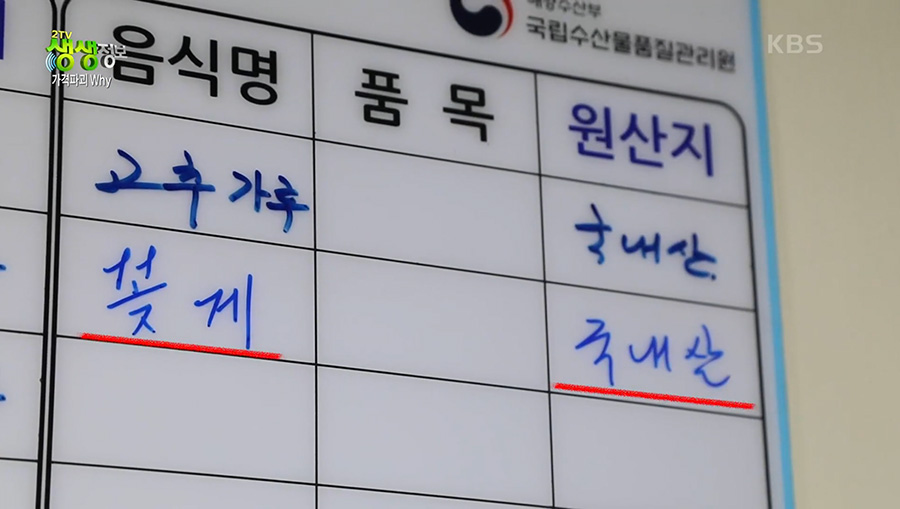 2TV
생생정보
가격파괴 Why
KBS
해양수산부
국립수산물품질관리원
음식명 품목 원산지
고추가루 국내산.
꽃게 국내산